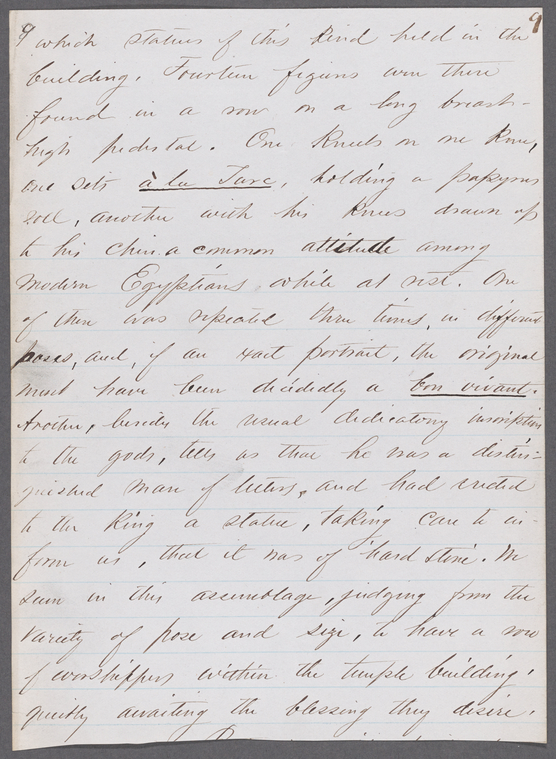 9 9
which statues of this kind held in the
building. Fourteen figures were there
found in a row on a long breast-
high pedestal. One Kneels on one Knee,
one sits à la Turc, holding a papyrus
roll, another with his Knees drawn up
to his chin. a common attitude among
modern Egyptians while at rest. One
of them was repeated three times, in different
poses, and, if an exact portrait, the original
must have been decidedly a bon vivant.
Another, besides the usual dedicatory inscription
to the gods, tells us that he was a distin-
guished man of letters, and had erected
to the King a statue, taking care to in-
form us, that it was of hard stone. We
seem in this assemblage, judging from the
variety of pose and size, to have a row
of worshippers within the temple building,
quietly awaiting the blessing they desire.